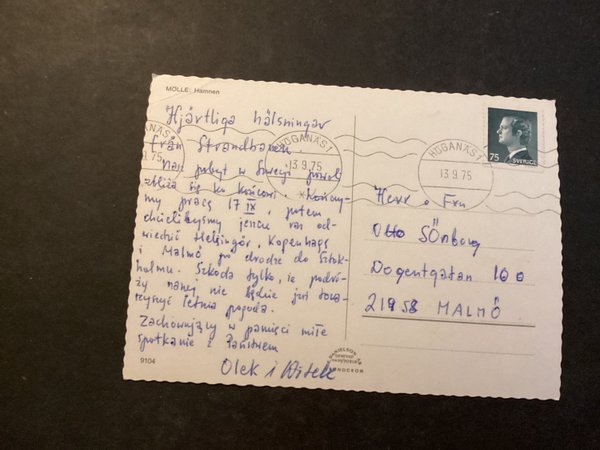 MÖLLE: Hamnen
Hjärtliga hälsningar
från Strandbaden.
Nasz pobyt w Szwecji powoli
zbliża się ku końcowi. Kończy-
my pracę 17 IX, potem
chcielibyśmy jeszcze raz od-
wiedzić Helsingör, Kopenhagę
i Malmö po drodze do Sztok-
holmu. Szkoda tylko, że podró-
ży naszej nie będzie już towa-
rzyszyć letnia pogoda.
Zachowujący w pamięci miłe
spotkanie z Państwem
Olek i Witek
9104
HÖGANÄS 1
13.9.75
HÖGANÄS 1
13.9.75
9.75
75 SVERIGE
Herr o Fru
Otto Sönborg
Dogentgatan 100
219 58 MALMÖ